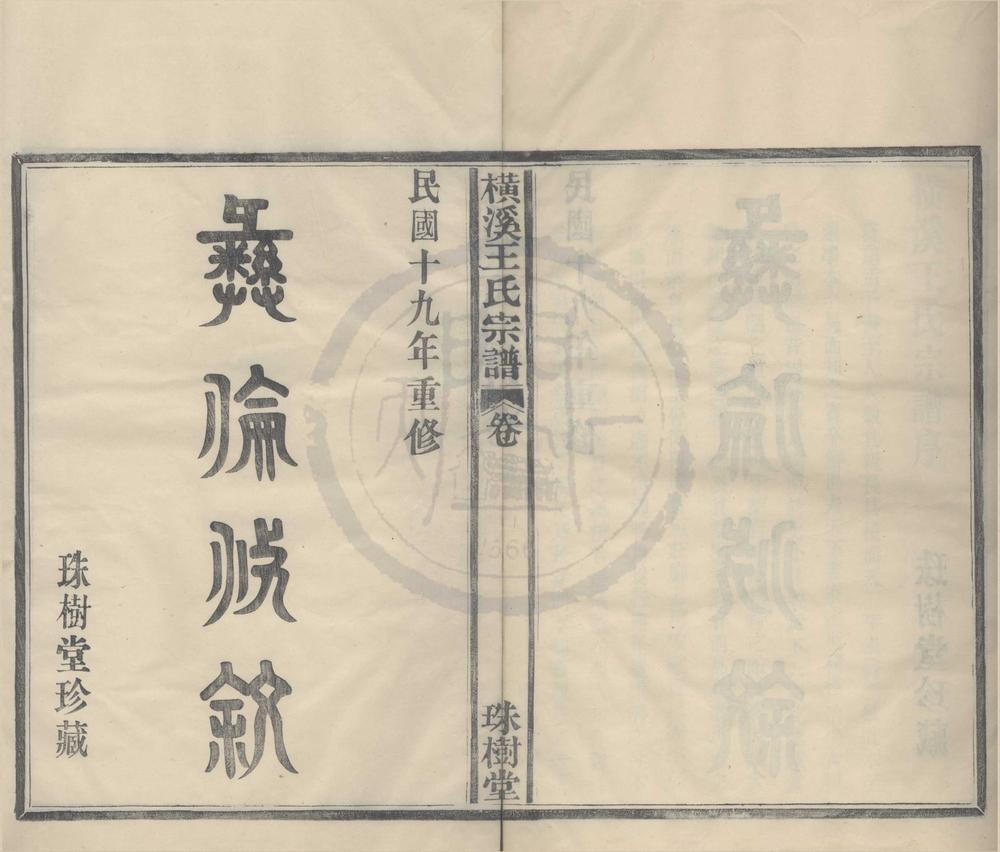 橫溪王氏宗譜 卷
珠樹堂
民國十九年重修
彝倫攸敘
珠樹堂珍藏